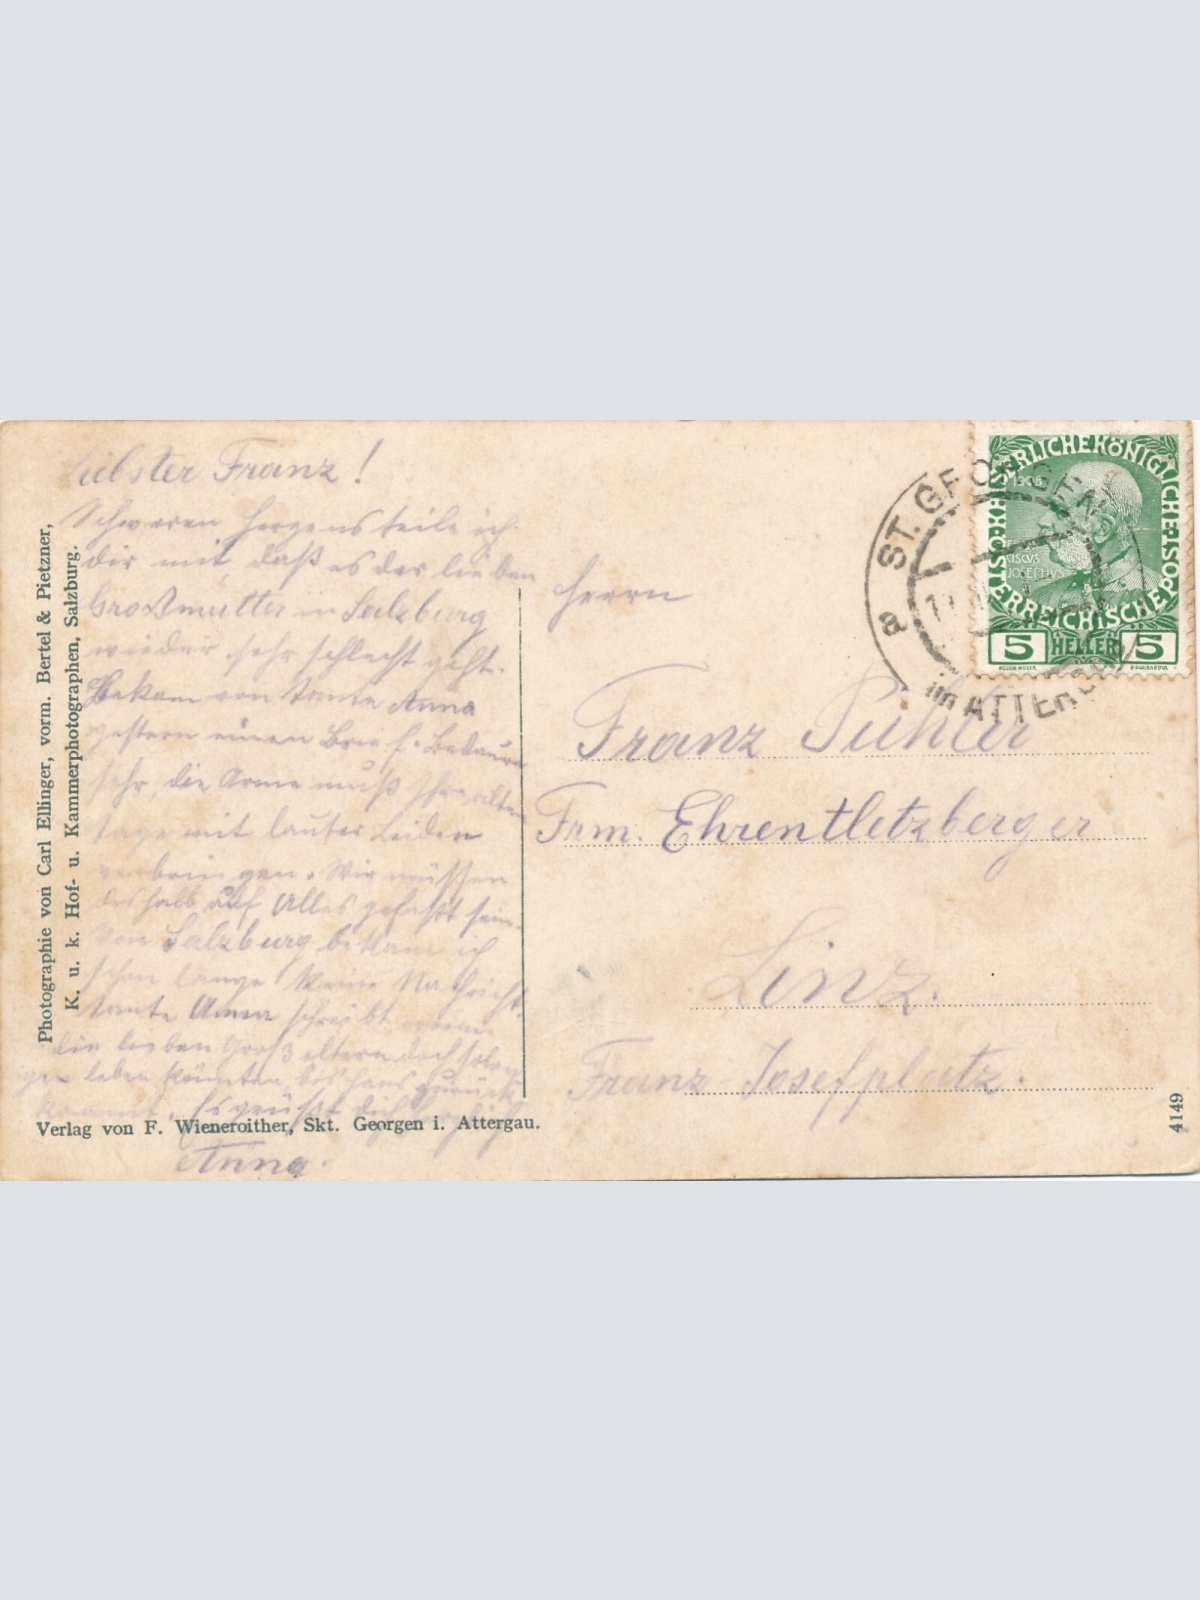 Liebster Franz!
Schweren Herzens teile ich
dir mit, daß es der lieben
Großmutter in Salzburg
wieder sehr schlecht geht.
Bekam von Tante Anna
gestern einen Brief. Bedaure
sehr, die Arme muß Ihre alten
Tage mit lauter Leiden
verbringen. Wir müssen
deshalb auf Alles gefaßt sein.
Von Salzburg bekam ich
schon lange keine Nachricht.
Tante Anna schreibt wenn
die lieben Großeltern doch solan
ge leben könnten, bis Hans zurück
kommt. Es grüßt dich
Anna.
Photographie von Carl Ellinger, vorm. Bertel & Pietzner,
K. u. k. Hof- u. Kammerphotographen, Salzburg.
Verlag von F. Wieneroither, Skt. Georgen i. Attergau.
Herrn
Franz Puhler
Frm. Ehrentletzberger
Linz.
Franz-Josefplatz.
4149
ST. GEORGEN
im ATTERGAU
a
KAISERLICHEKÖNIGLICHE·ÖSTERREICHISCHE·POST
1908
JOSEPHVS
5 HELLER 5